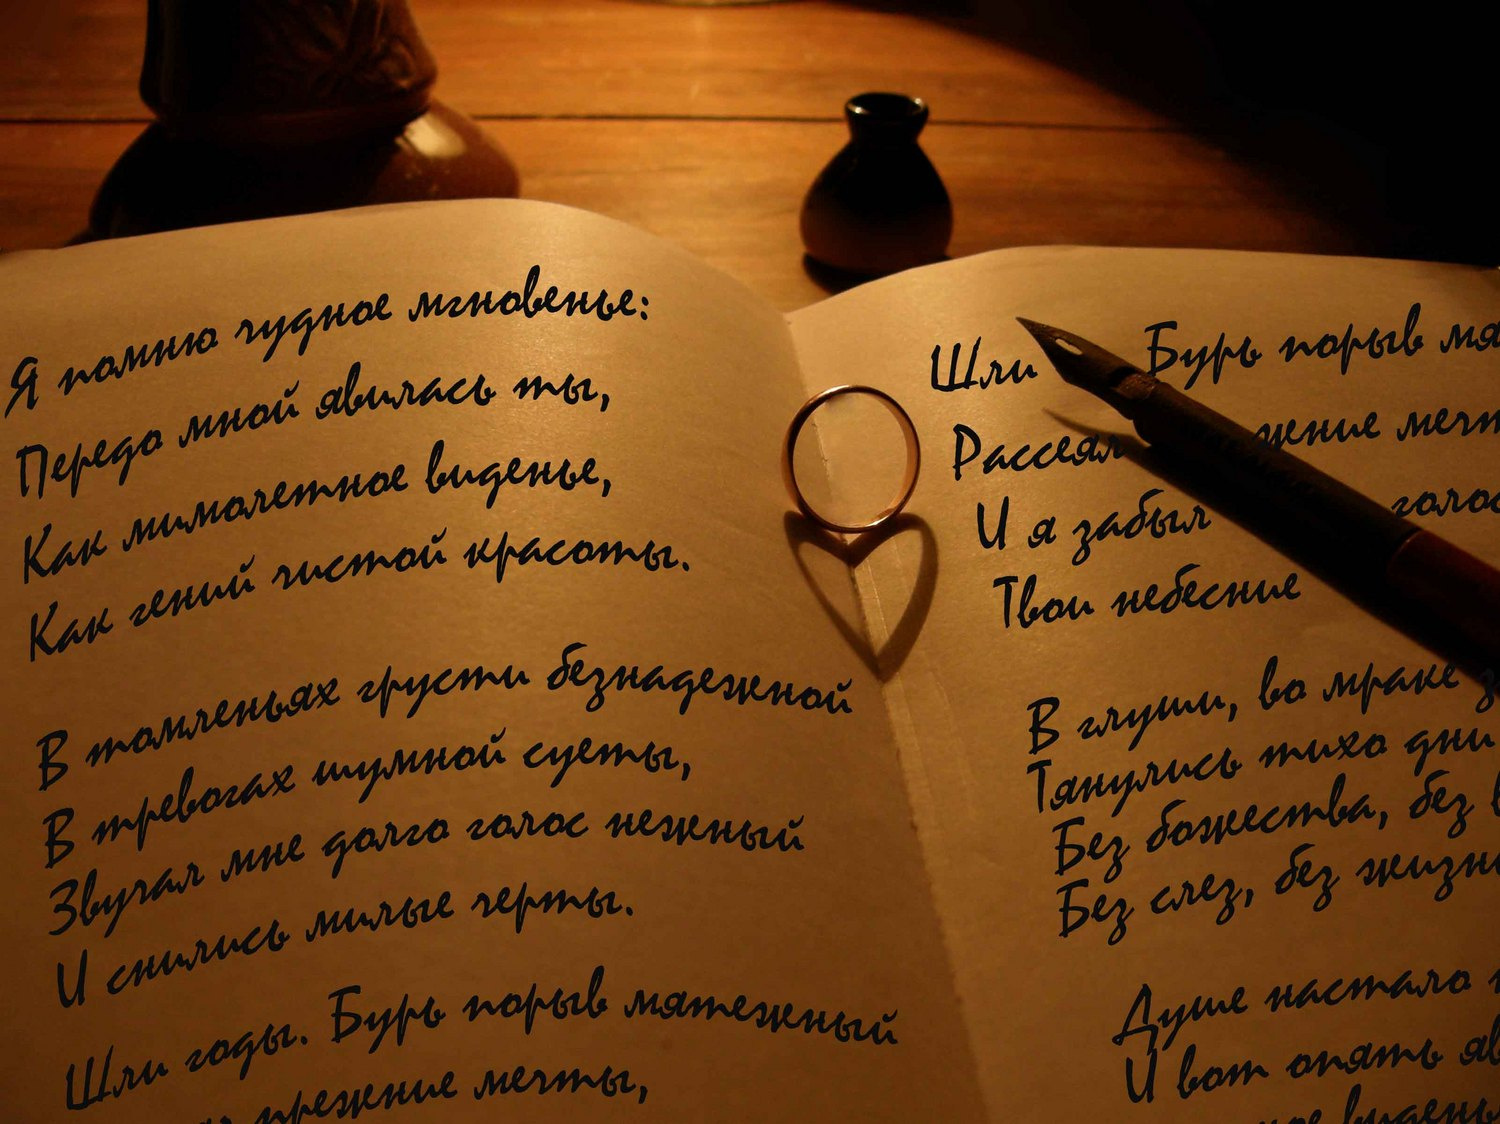 Я помню чудное мгновенье:
Передо мной явилась ты,
Как мимолетное виденье,
Как гений чистой красоты.
В томленьях грусти безнадежной
В тревогах шумной суеты,
Звучал мне долго голос нежный
И снились милые черты.
Шли годы. Бурь порыв мятежный
прежние мечты,
Шли Бурь порыв
Рассеял
И я забыл
Твои небесние
В глуши, во мраке
Тянулись тихо дни
Без божества, без
Без слез, без
Душе настало
И вот опять